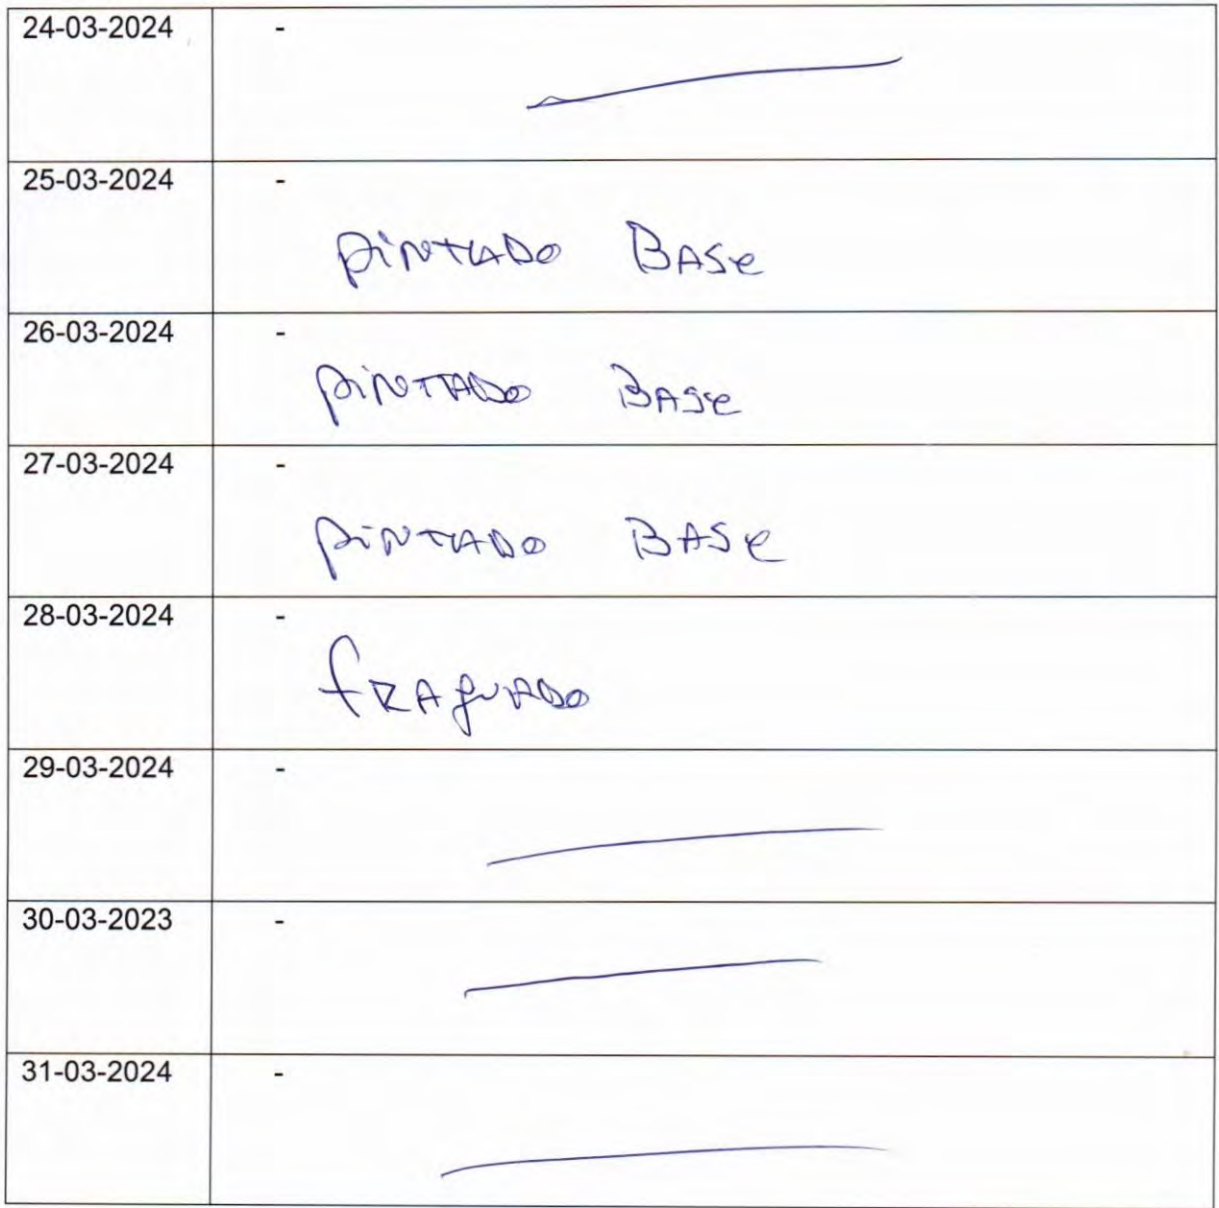 24-03-2024 -
25-03-2024 -
pintado Base
26-03-2024 -
pintado Base
27-03-2024 -
pintado BASe
28-03-2024 -
fraguado
29-03-2024 -
30-03-2023 -
31-03-2024 -